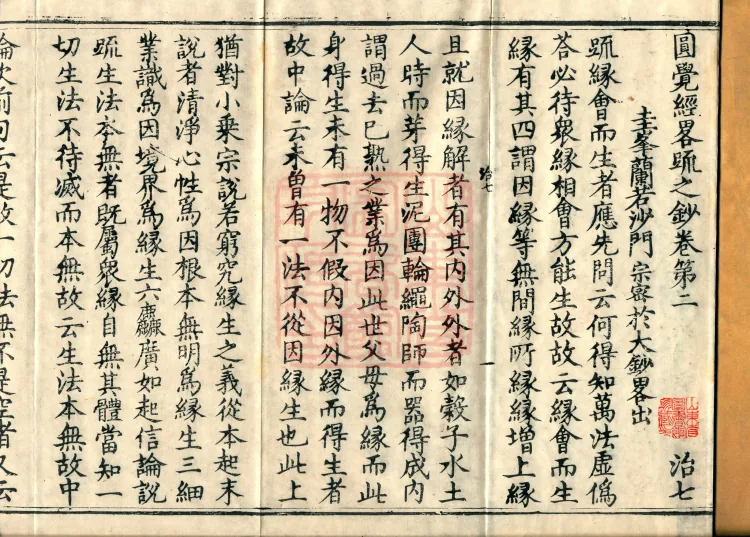 圓覺經畧䟽之鈔卷第二 治七
圭峯蘭若沙門 宗宻於大鈔畧出
䟽縁會而生者應先問云何得知萬法虛僞
荅必待衆縁相會方能生故故云縁會而生
縁有其四謂因縁等無間縁所縁縁增上縁
治七 一
且就因縁解者有其内外外者如糓子水土
人時而芽得生泥團輪繩陶師而器得成内
謂過去已熟之業爲因此世父母爲縁而此
身得生未有一物不假内因外縁而得生者
故中論云未曽有一法不從因縁生也此上
猶對小乗宗說若窮究縁生之義從本起末
說者清淨心性爲因根本無明爲縁生三細
業識爲因境界爲縁生六麤廣如起信論說
䟽生法夲無者旣屬衆縁自無其體當知一
切生法不待滅而本無故云生法本無故中
論次前句云是故一切法無不是空者又云